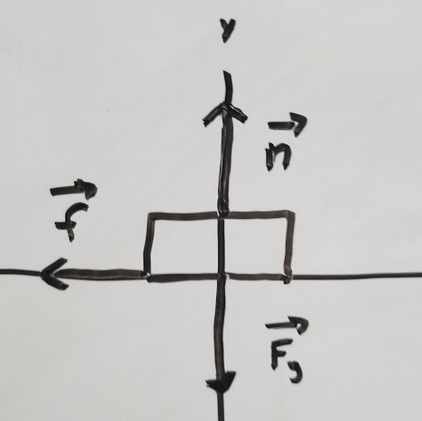 y
n
f
Fg